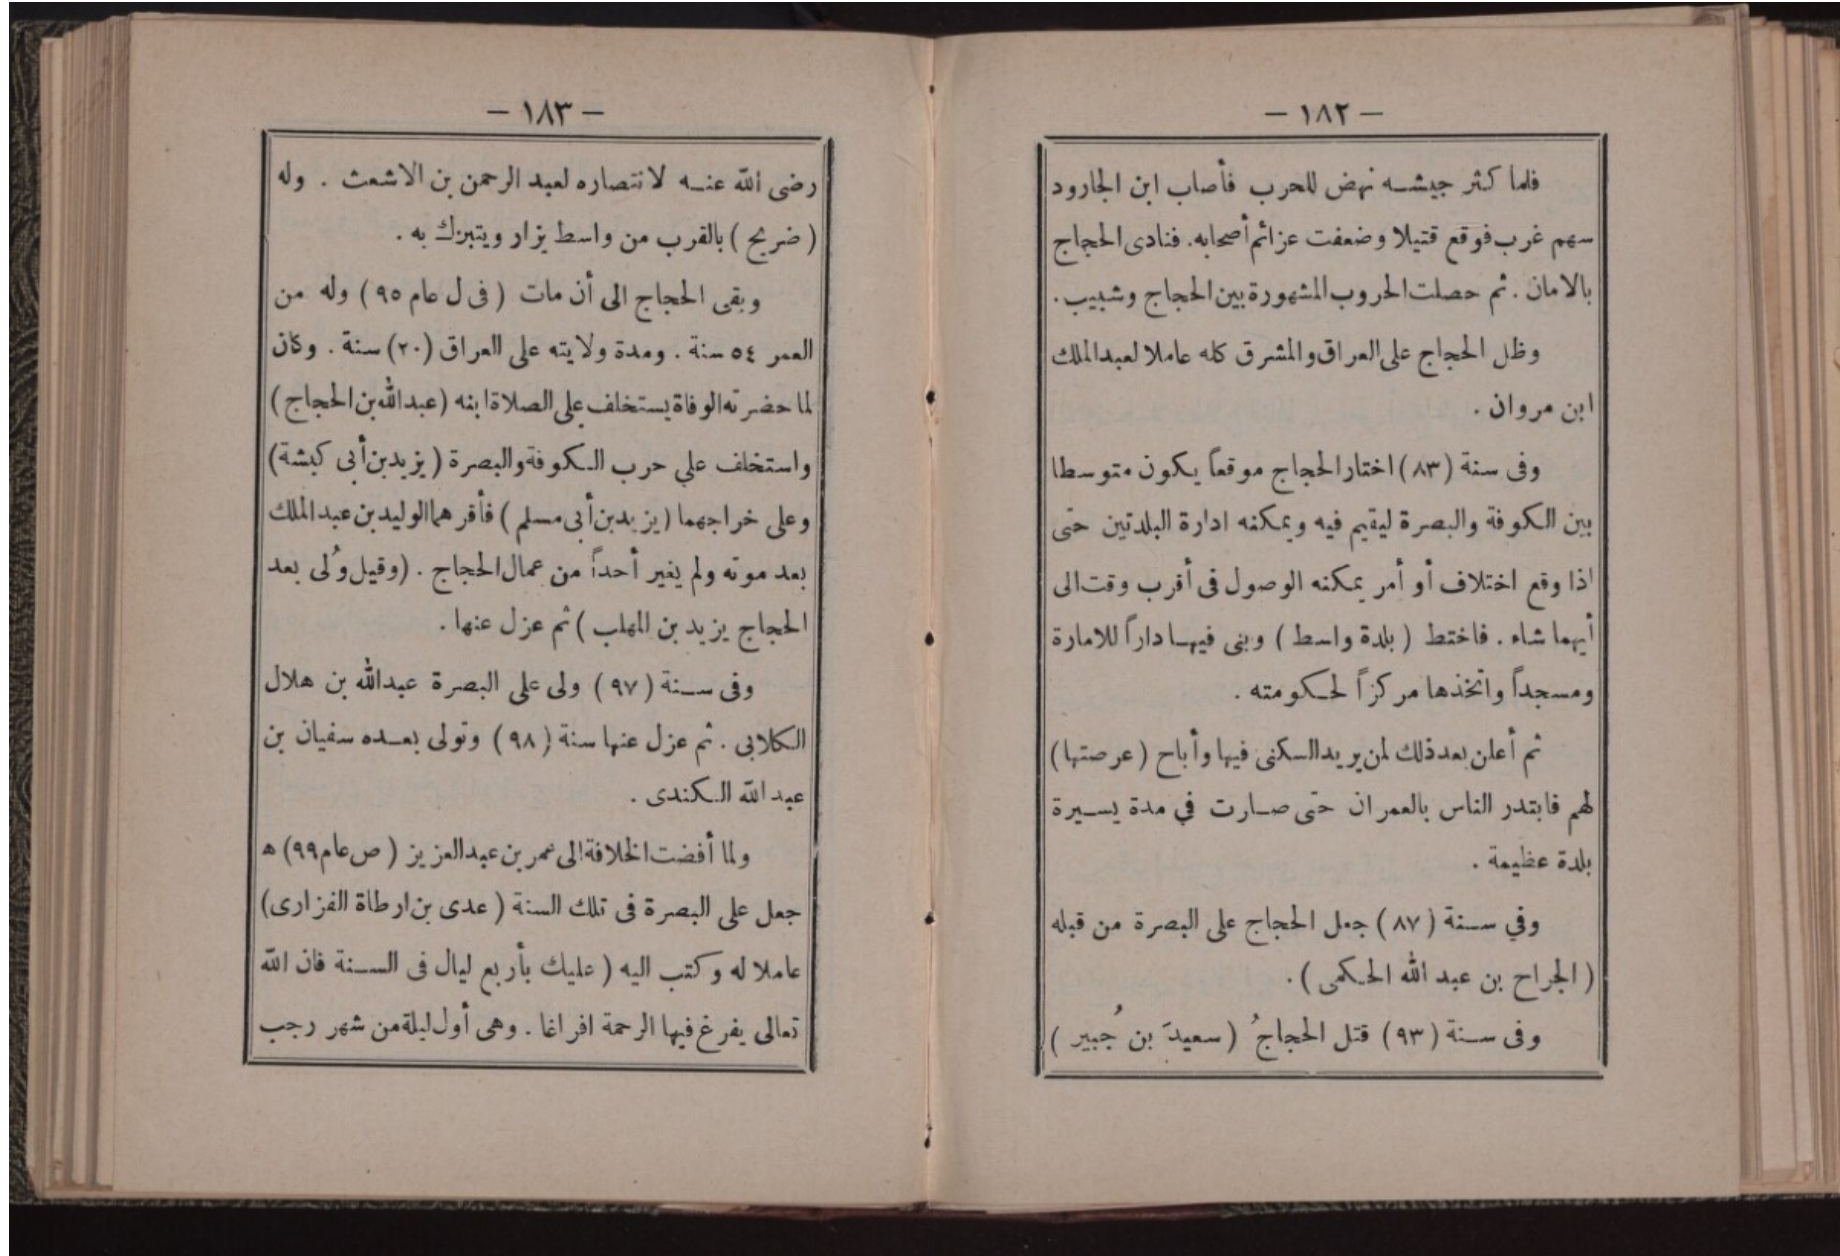 — ١٨٢ —
فلما كثر جيشه نهض للحرب فأصاب ابن الجارود
سهم غرب فوقع قتيلا وضعفت عزائم أصحابه. فنادى الحجاج
بالامان . ثم حصلت الحروب المشهورة بين الحجاج وشبيب .
وظل الحجاج على العراق والمشرق كله عاملا لعبد الملك
ابن مروان .
وفى سنة (٨٣) اختار الحجاج موقعاً يكون متوسطا
بين الكوفة والبصرة ليقيم فيه ويمكنه ادارة البلدتين حتى
اذا وقع اختلاف أو أمر يمكنه الوصول فى أقرب وقت الى
أيهما شاء . فاختط ( بلدة واسط ) وبنى فيها داراً للامارة
ومسجداً واتخذها مركزاً لحكومته .
ثم أعلن بعد ذلك لمن يريد السكنى فيها وأباح (عرصتها)
لهم فابتدر الناس بالعمران حتى صارت في مدة يسيرة
بلدة عظيمة .
وفي سنة (٨٧) جعل الحجاج على البصرة من قبله
( الجراح بن عبد الله الحكمى ) .
وفى سنة (٩٣) قتل الحجاجُ (سعيدَ بن جُبير )
— ١٨٣ —
رضى الله عنه لانتصاره لعبد الرحمن بن الاشعث . وله
( ضريح ) بالقرب من واسط يزار ويتبرك به .
وبقى الحجاج الى أن مات ( فى ل عام ٩٥ ) وله من
العمر ٥٤ سنة . ومدة ولايته على العراق (٢٠) سنة . وكان
لما حضرته الوفاة يستخلف على الصلاة ابنه (عبد الله بن الحجاج )
واستخلف علي حرب الكوفة والبصرة ( يزيد بن أبى كبشة)
وعلى خراجهما ( يزيد بن أبى مسلم ) فأقرهما الوليد بن عبد الملك
بعد موته ولم يغير أحداً من عمال الحجاج . (وقيل وُلى بعد
الحجاج يزيد بن المهلب ) ثم عزل عنها .
وفى سنة ( ٩٧ ) ولى على البصرة عبد الله بن هلال
الكلابى . ثم عزل عنها سنة ( ٩٨ ) وتولى بعده سفيان بن
عبد الله الكندى .
ولما أفضت الخلافة الى عمر بن عبد العزيز ( ص عام ٩٩) ه
جعل على البصرة فى تلك السنة ( عدى بن ارطاة الفزارى)
عاملا له وكتب اليه ( عليك بأربع ليال فى السنة فان الله
تعالى يفرغ فيها الرحمة افراغا . وهى أول ليلة من شهر رجب